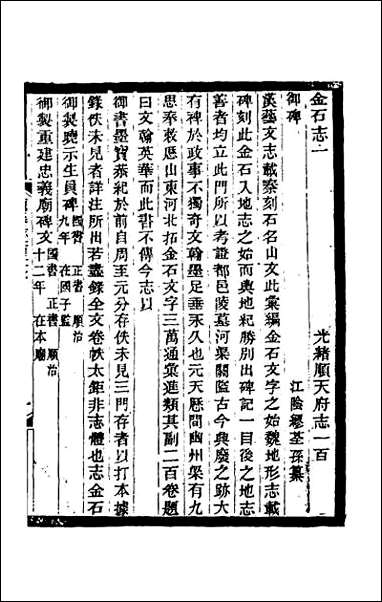 光緒順天府志一百
金石志一
江陰繆荃孫纂
御碑
漢藝文志載秦刻石名山文此彙編金石文字之始魏地形志載
碑刻此金石入地志之始而輿地紀勝別出碑記一目後之地志
善者均立此門所以考證都邑陵墓河渠關隘古今興廢之跡大
有裨於政事不獨奇文翰墨足垂永久也元天厯間幽州梁有九
思奉敕厯山東河北拓金石文字三萬通彙進類其副二百卷題
曰文翰英華而此書不傳今志以
御書墨寶恭紀於前自周至元分存佚未見三門存者以打本據
錄佚未見者詳注所出若盡錄全文卷帙太鉅非志體也志金石
御製曉示生員碑 國書 正書 順治九年 在國子監
御製重建忠義廟碑文 國書 正書 順治十二年 在本廟